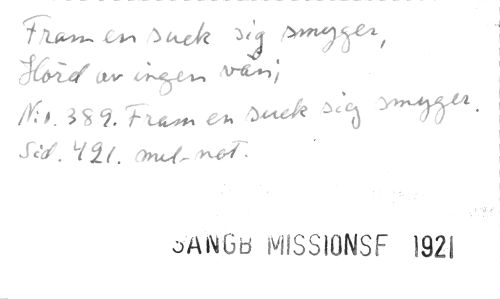 Fram en suck sig smyger,
Hörd av ingen vän;
N:o. 389. Fram en suck sig smyger.
Sid. 421. mel-not.
SANGB MISSIONSF 1921